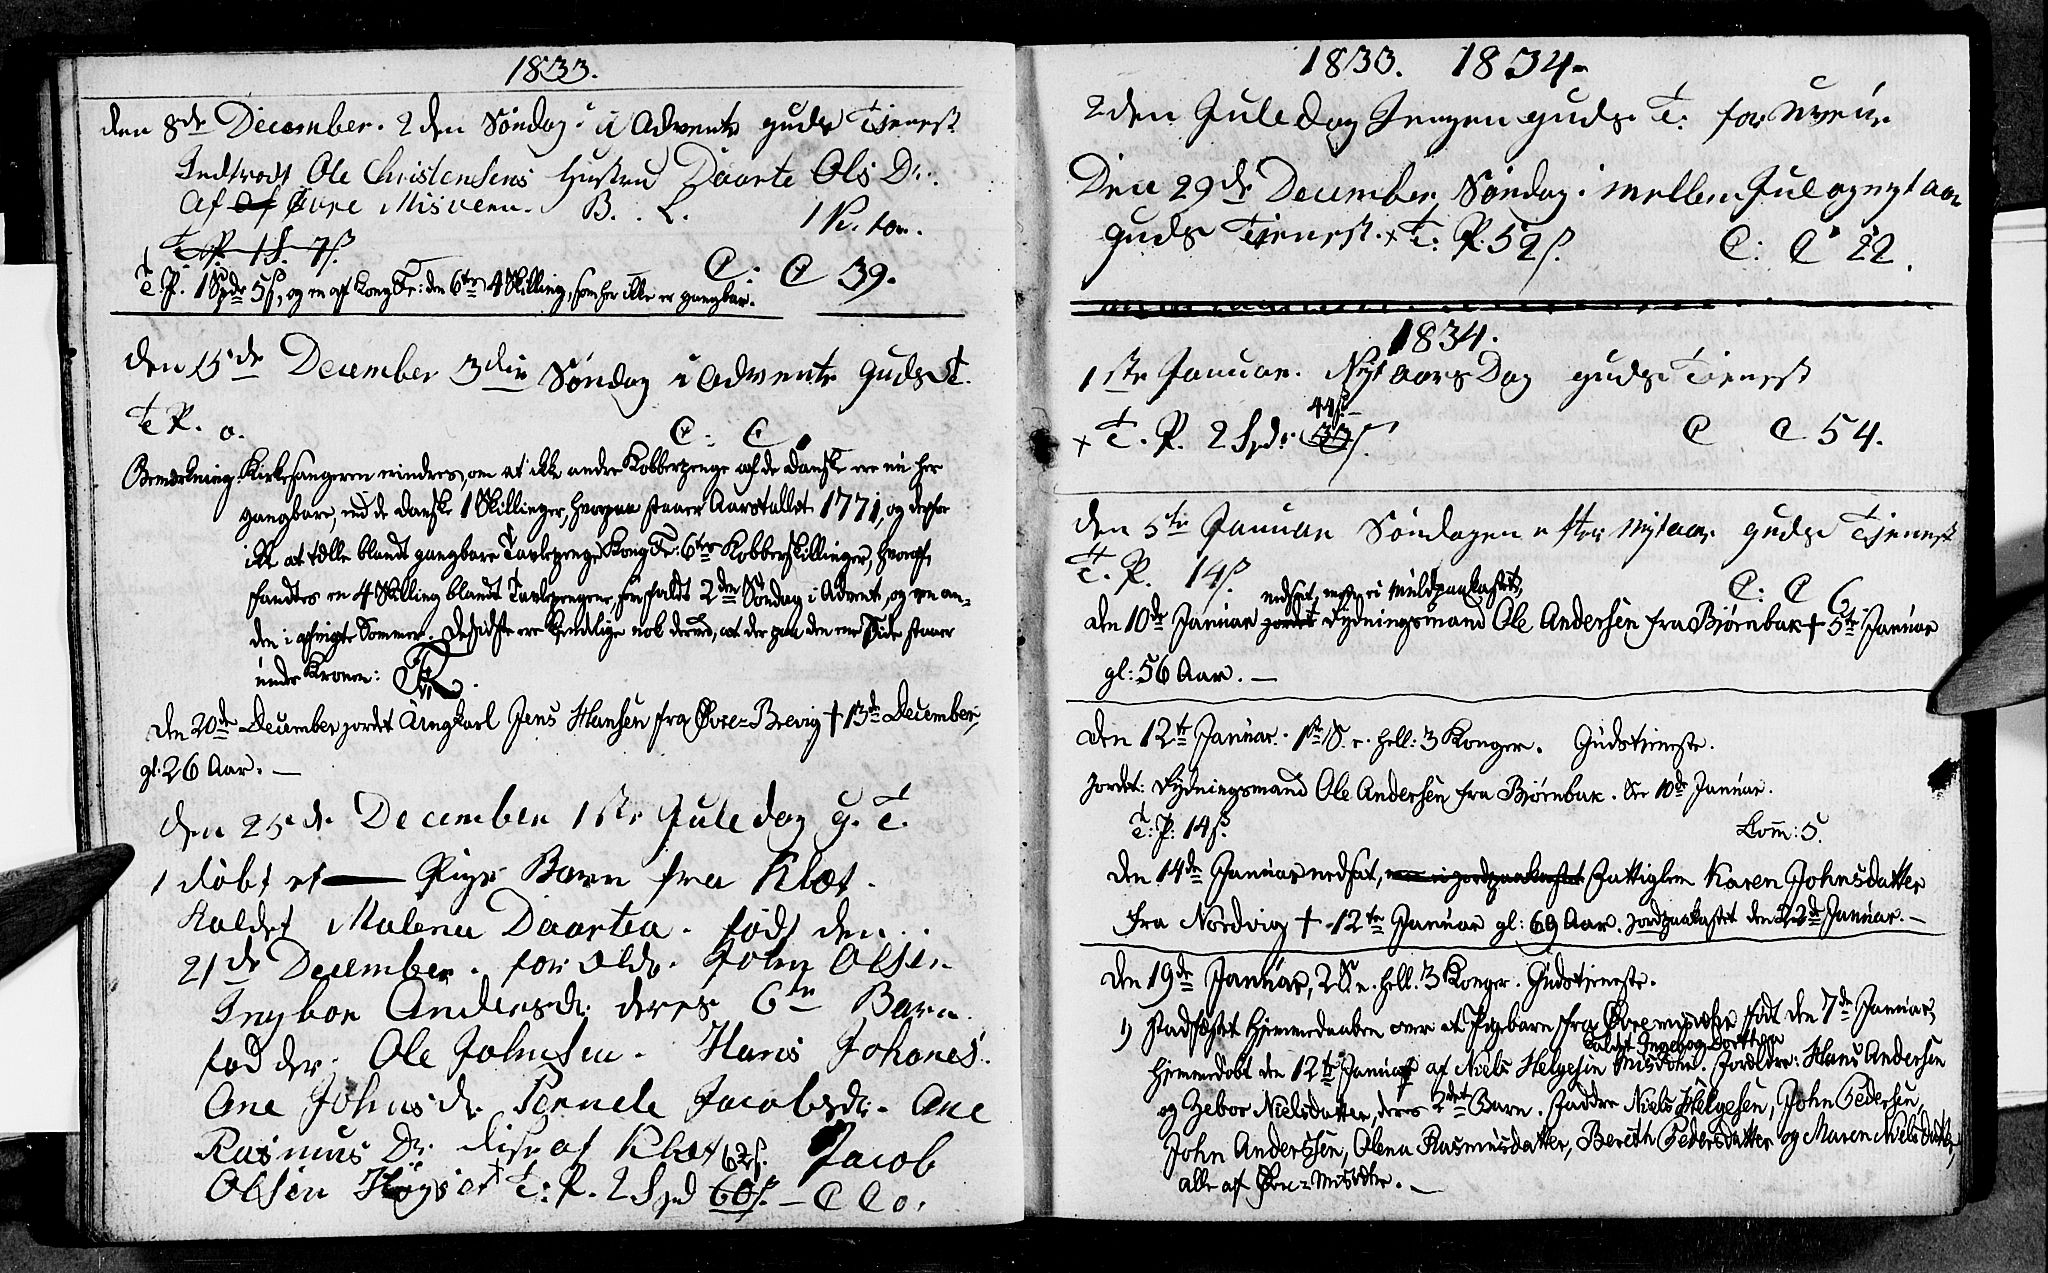 1833.
den 8de December. 2den Søndag i Advente guds Tjenest
Indtrodt Ole Christensens Hustru Daarte Ols Dr.
af af Øvre Misvenn. B. L. 1 K. ton.
T. P. 1 S. 7 ß.
C: C 39.
T. P. 1 Spdr 5 ß, og en af Kong Fr: den 6te 4 Skilling, som her ikke er gangbar.
den 15de December 3die Søndag i Advente Guds T.
T P. o. C: C o
Bemærkning. Kirkesangeren erindres, om at ikke andre Kobberpenge af de danske ere nu her
gangbare, end de danske 1 Skillinger, hvorpaa staaer Aarstallet 1771, og derfor
ikke at tælle blandt gangbare Tavlepenge Kong Fr: 6tes Kobberskillinger, hvoraf
fandtes en 4 Skilling blandt Tavlepengene, som faldt 2den Søndag i Advent, og een an-
den i afvigte Sommer. De sidste ere kjendelige nok derved, at der paa den ene Side staaer
under Kronen: FR VI.
Den 20de December jordet Ungkarl Jens Hansen fra Øvre-Brevig † 13de December,
gl. 26 Aar. —
den 25de December 1ste Juledag G. T.
1 døbt et — Pige Barn fra Klæt.
kaldet Malena Daartea. født den
21de December. foreldr. John Olsen
Ingbor Andersdr. deres 6te Barn
fadder. Ole Johnsen. Hans Johanes.
Ane Johnsdr. Pernele Jacobsdr. Ane
Rasmus Dr. disse af Klæt 62 ß. Jacob
Olsen Høgset T: P. 2 Spd 60 ß. — C C o.
1833. 1834.
2den Juledag Ingen guds T: for Uveir
Den 29de December, Søndag i mellem Jul og nyt aar
guds Tienest. × T: P. 52 ß. C: C 22.
1834.
1ste Januar. Nyt aars Dag guds Tienest
44 ß
× T. P. 2 Spdr. 33 ß. C C 54.
den 5te Januar Søndagen efter nytaar guds Tjenest
T. P. 14 ß C: C 6.
nedsat, men ei muldpaakastet,
den 10de Januar jordet Dydningsmand Ole Andersen fra Bjørnbak † 5te Januar
gl: 56 Aar. —
den 12te Januar. 1ste S. e. hell: 3 Konger. Gudstieneste.
jordet: Dydningsmand Ole Andersen fra Bjørnbak. See 10de Januar.
T: P: 14 ß. Com̅: 5.
Den 14de Januar nedsat, men ei jordpaakastet Fattiglem Karen Johnsdatter
fra Nordvig † 12te Januar gl: 69 Aar. jordpaakastet den 22de Januar. —
Den 19de Januar, 2 S. e. hell. 3 Konger. Gudstjeneste.
1) Stadfæstet Hjemmedaaben over et Pigebarn fra Øvremisvær født den 7de Januar,
kaldet Ingebog Dorthea
hjemmedøbt den 12te Januar af Niels Helgesen Misvær. Forældre: Hans Andersen
og Zebor Nielsdatter, deres 2det Barn. Faddre Niels Helgesen, John Pedersen,
John Anderssen, Olena Rasmusdatter, Bereth Pedersdatter og Maren Nielsdatter,
alle af Øvre-Misvær. —